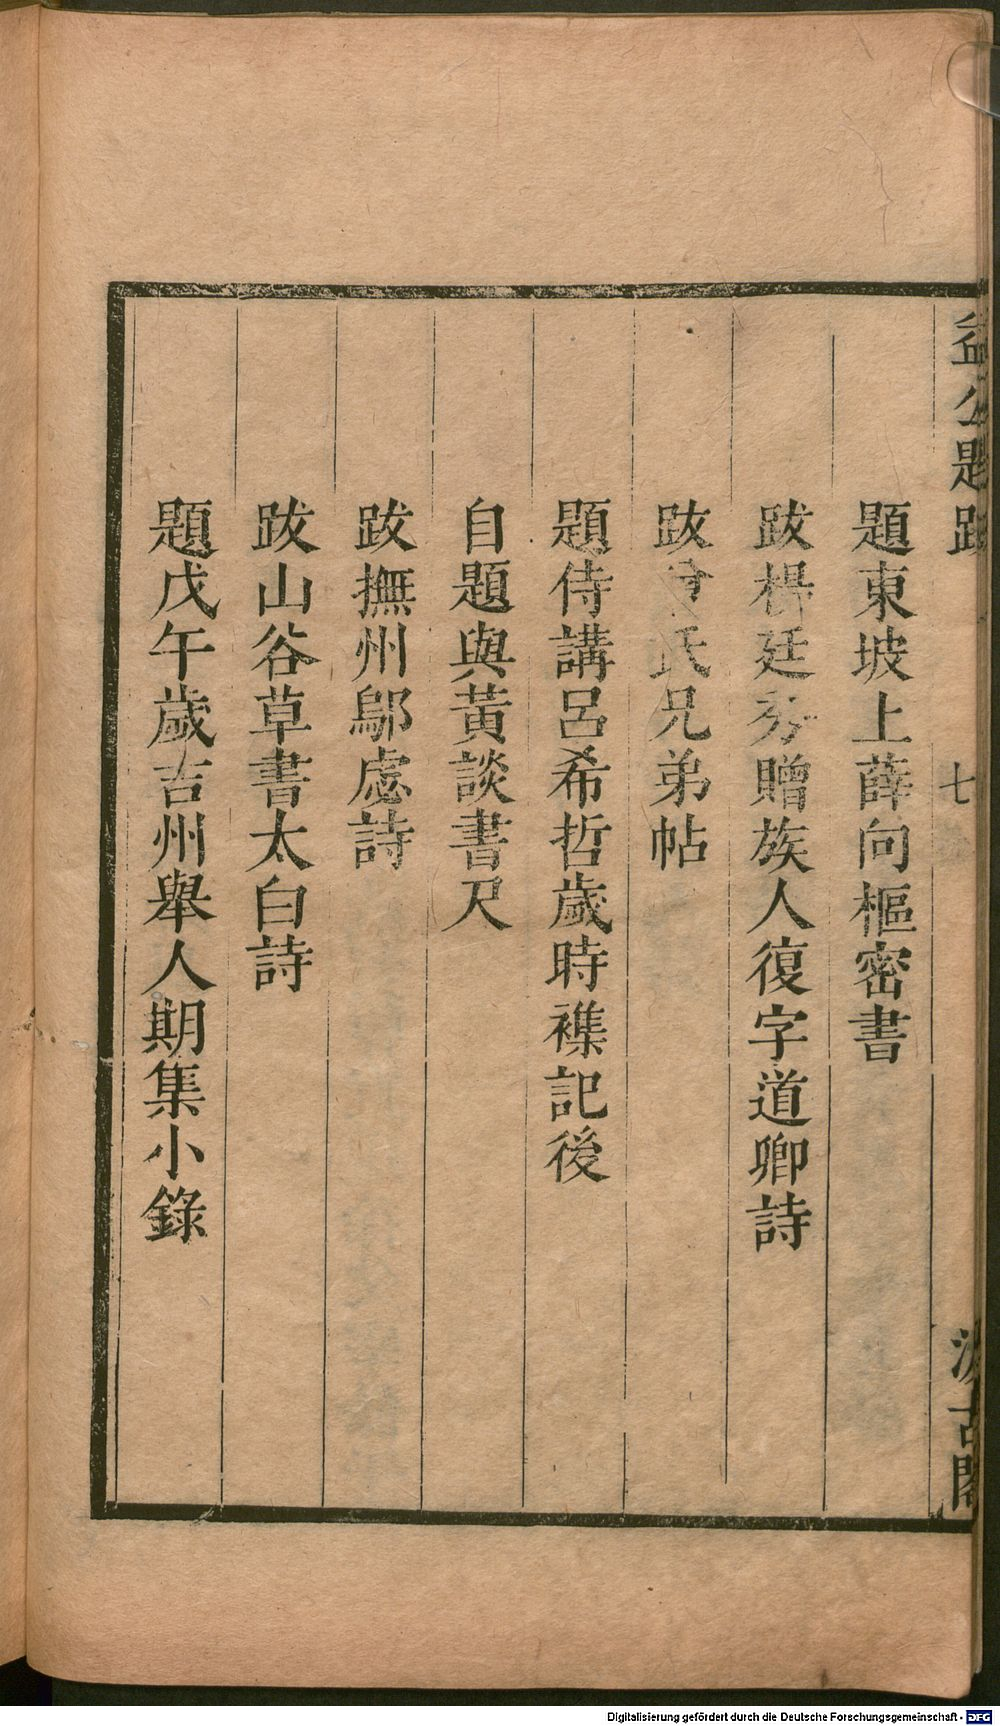 益公題跋
七
汲古閣
題東坡上薛向樞密書
跋楊廷秀贈族人復字道卿詩
跋曾氏兄弟帖
題侍講呂希哲歲時襍記後
自題與黃談書尺
跋撫州鄔虙詩
跋山谷草書太白詩
題戊午歲吉州舉人期集小錄
Digitalisierung gefördert durch die Deutsche Forschungsgemeinschaft - DFG